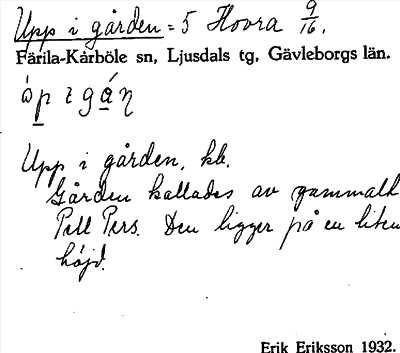 Upp i gården = 5 Hovra 9/16.
Färila-Kårböle sn, Ljusdals tg, Gävleborgs län.
Upp i gården, kb.
Gården kallades av gammalt
Pell Pers. Den ligger på en liten
höjd.
Erik Eriksson 1932.